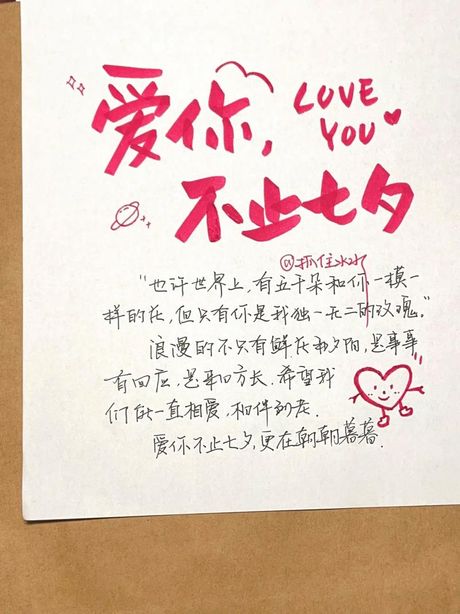 爱你,
LOVE
YOU
不止七夕
@抓住水水
"也许世界上,有五千朵和你一模一
样的花,但只有你是我独一无二的玫瑰。"
浪漫的不只有鲜花和夕阳,是事事
有回应,是来日方长.希望我
们能一直相爱,相伴到老.
爱你不止七夕,更在朝朝暮暮.